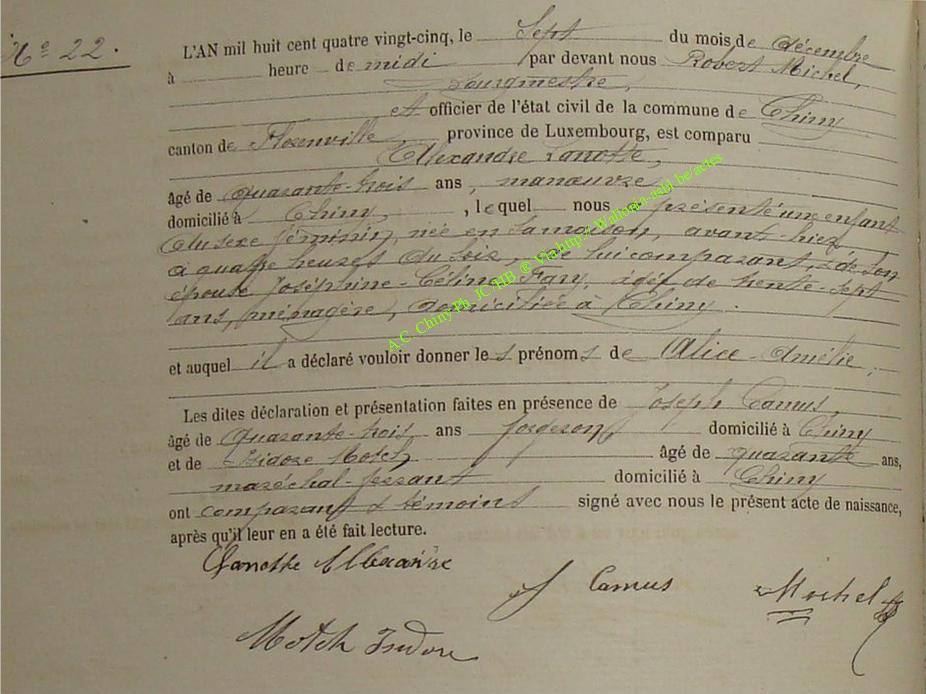 N° 22.
L'AN mil huit cent quatre vingt-cinq, le Sept du mois de décembre
à heure de midi par devant nous Robert Michel,
Bourgmestre,
et officier de l'état civil de la commune de Chiny
canton de Florenville, province de Luxembourg, est comparu
Alexandre Lanotte,
âgé de quarante-trois ans, manœuvre
domicilié à Chiny, , lequel nous présenté une enfant
du sexe féminin, née en sa maison, avant-hier
à quatre heures du soir, de lui comparant, & de son
épouse Joséphine-Céline Fany, âgée de trente-sept
ans, ménagère, domiciliée à Chiny.
et auquel il a déclaré vouloir donner les prénoms de Alice-Amélie,
Les dites déclaration et présentation faites en présence de Joseph Camus,
âgé de quarante-trois ans forgeron, domicilié à Chiny
et de Isidore Motch, âgé de quarante ans,
maréchal-ferrant domicilié à Chiny
ont comparant & témoins signé avec nous le présent acte de naissance,
après qu'il leur en a été fait lecture.
Lanotte Allexandre
J Camus
Michel
Motch Isidore
A.C. Chiny Ph. JC/HB @ Via http://Wallonia-asbl.be/actes